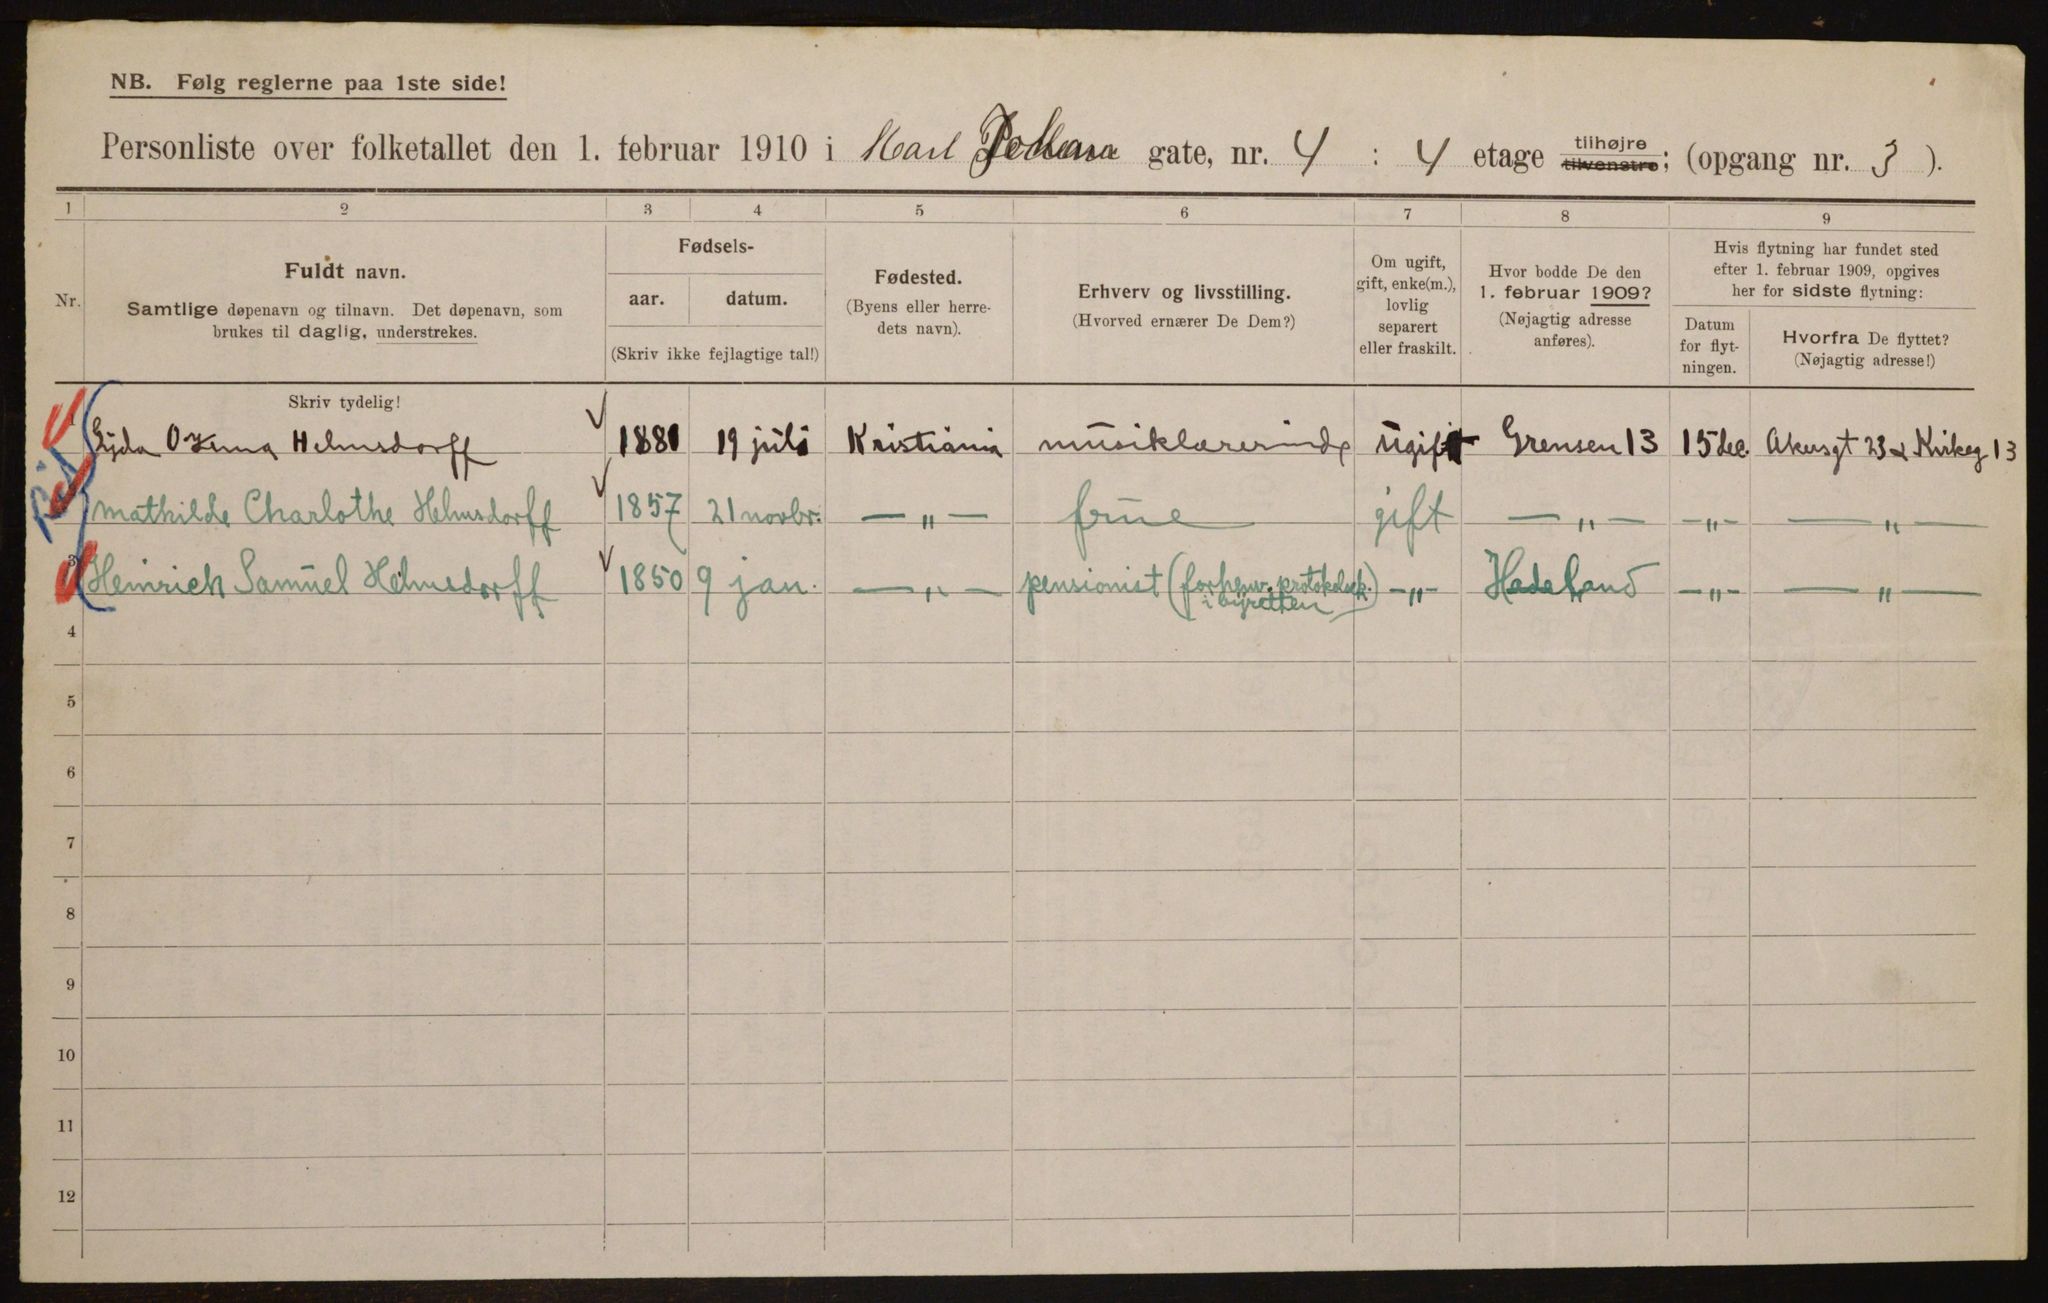 NB. Følg reglerne paa 1ste side!
Personliste over folketallet den 1. februar 1910 i Karl Johans gate, nr. 4 : 4 etage tilhøjre tilvenstre; (opgang nr. 3 ).
1 2 3 4 5 6 7 8 9
Nr.
Fuldt navn.
Samtlige døpenavn og tilnavn. Det døpenavn, som
brukes til daglig, understrekes.
Fødsels-
aar. datum.
(Skriv ikke fejlagtige tal!)
Fødested.
(Byens eller herre-
dets navn).
Erhverv og livsstilling.
(Hvorved ernærer De Dem?)
Om ugift,
gift, enke(m.),
lovlig
separert
eller fraskilt.
Hvor bodde De den
1. februar 1909?
(Nøjagtig adresse
anføres).
Hvis flytning har fundet sted
efter 1. februar 1909, opgives
her for sidste flytning:
Datum
for flyt-
ningen.
Hvorfra De flyttet?
(Nøjagtig adresse!)
Skriv tydelig!
1 Helmsdorff 1881 19 juli Kristiania musiklærerinde ugift Grensen 13 15 dec. Akersgt 23 Kirkeg 13
mathilde Charlothe Helmsdorff 1857 21 novbr. — „ — frue gift — „ — — „ — — „ —
3 Heinrich Samuel Helmsdorff 1850 9 jan. — „ — pensionist (forhenv. protokolsek.) — „ — Hadeland — „ — — „ —
i byretten
4
5
6
7
8
9
10
11
12